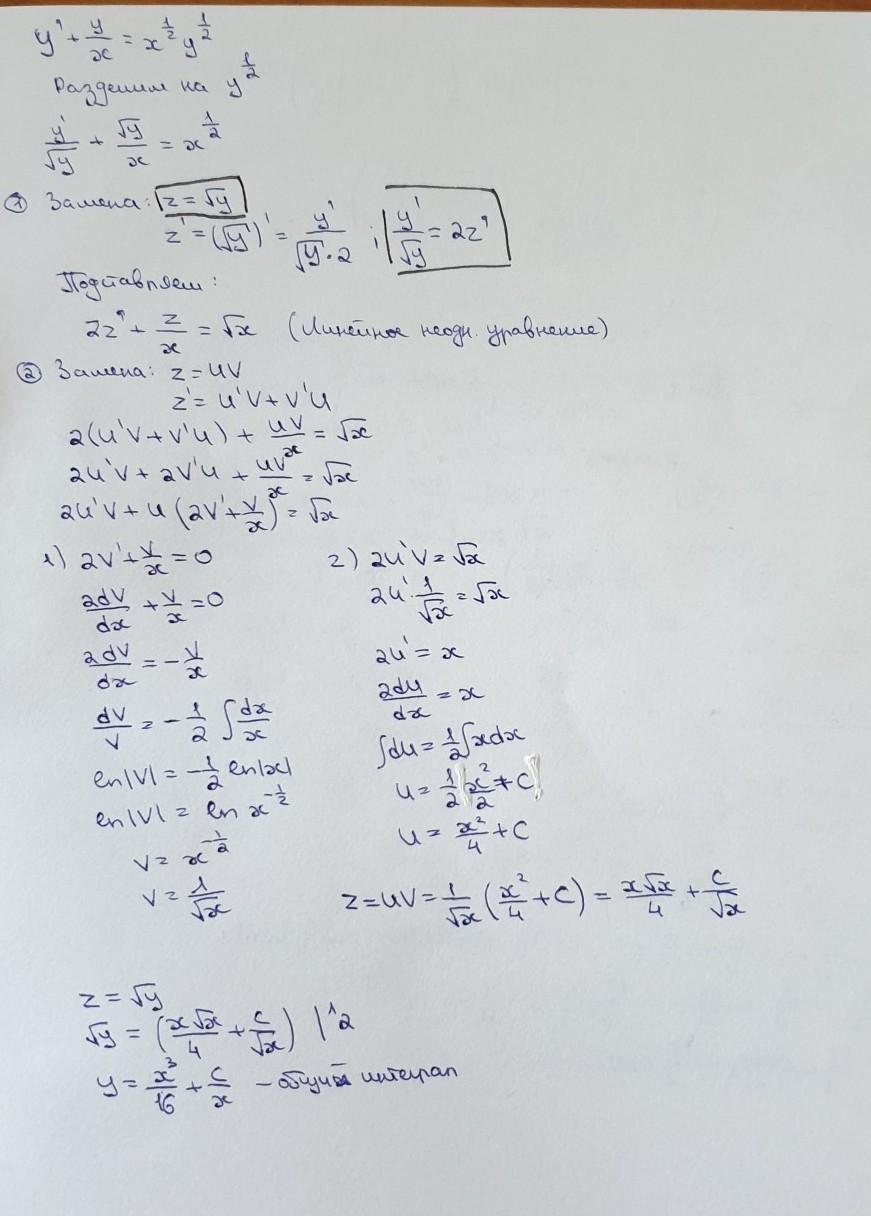 y' + y/x = x^{1/2} y^{1/2}
Разделим на y^{1/2}
y'/√y + √y/x = x^{1/2}
① Замена: z = √y
z' = (√y)' = y'/(√y·2) ; y'/√y = 2z'
Подставляем:
2z' + z/x = √x (Линейное неодн. уравнение)
② Замена: z = uv
z' = u'v + v'u
2(u'v + v'u) + uv/x = √x
2u'v + 2v'u + uv/x = √x
2u'v + u(2v' + v/x) = √x
1) 2v' + v/x = 0
2dv/dx + v/x = 0
2dv/dx = -v/x
dv/v = -1/2 ∫dx/x
ln|v| = -1/2 ln|x|
ln|v| = ln x^{-1/2}
v = x^{-1/2}
v = 1/√x
2) 2u'v = √x
2u'·1/√x = √x
2u' = x
2du/dx = x
∫du = 1/2∫xdx
u = 1/2 x²/2 + C
u = x²/4 + C
z = uv = 1/√x (x²/4 + C) = x√x/4 + C/√x
z = √y
√y = (x√x/4 + C/√x) |^2
y = x³/16 + C/x – общий интеграл